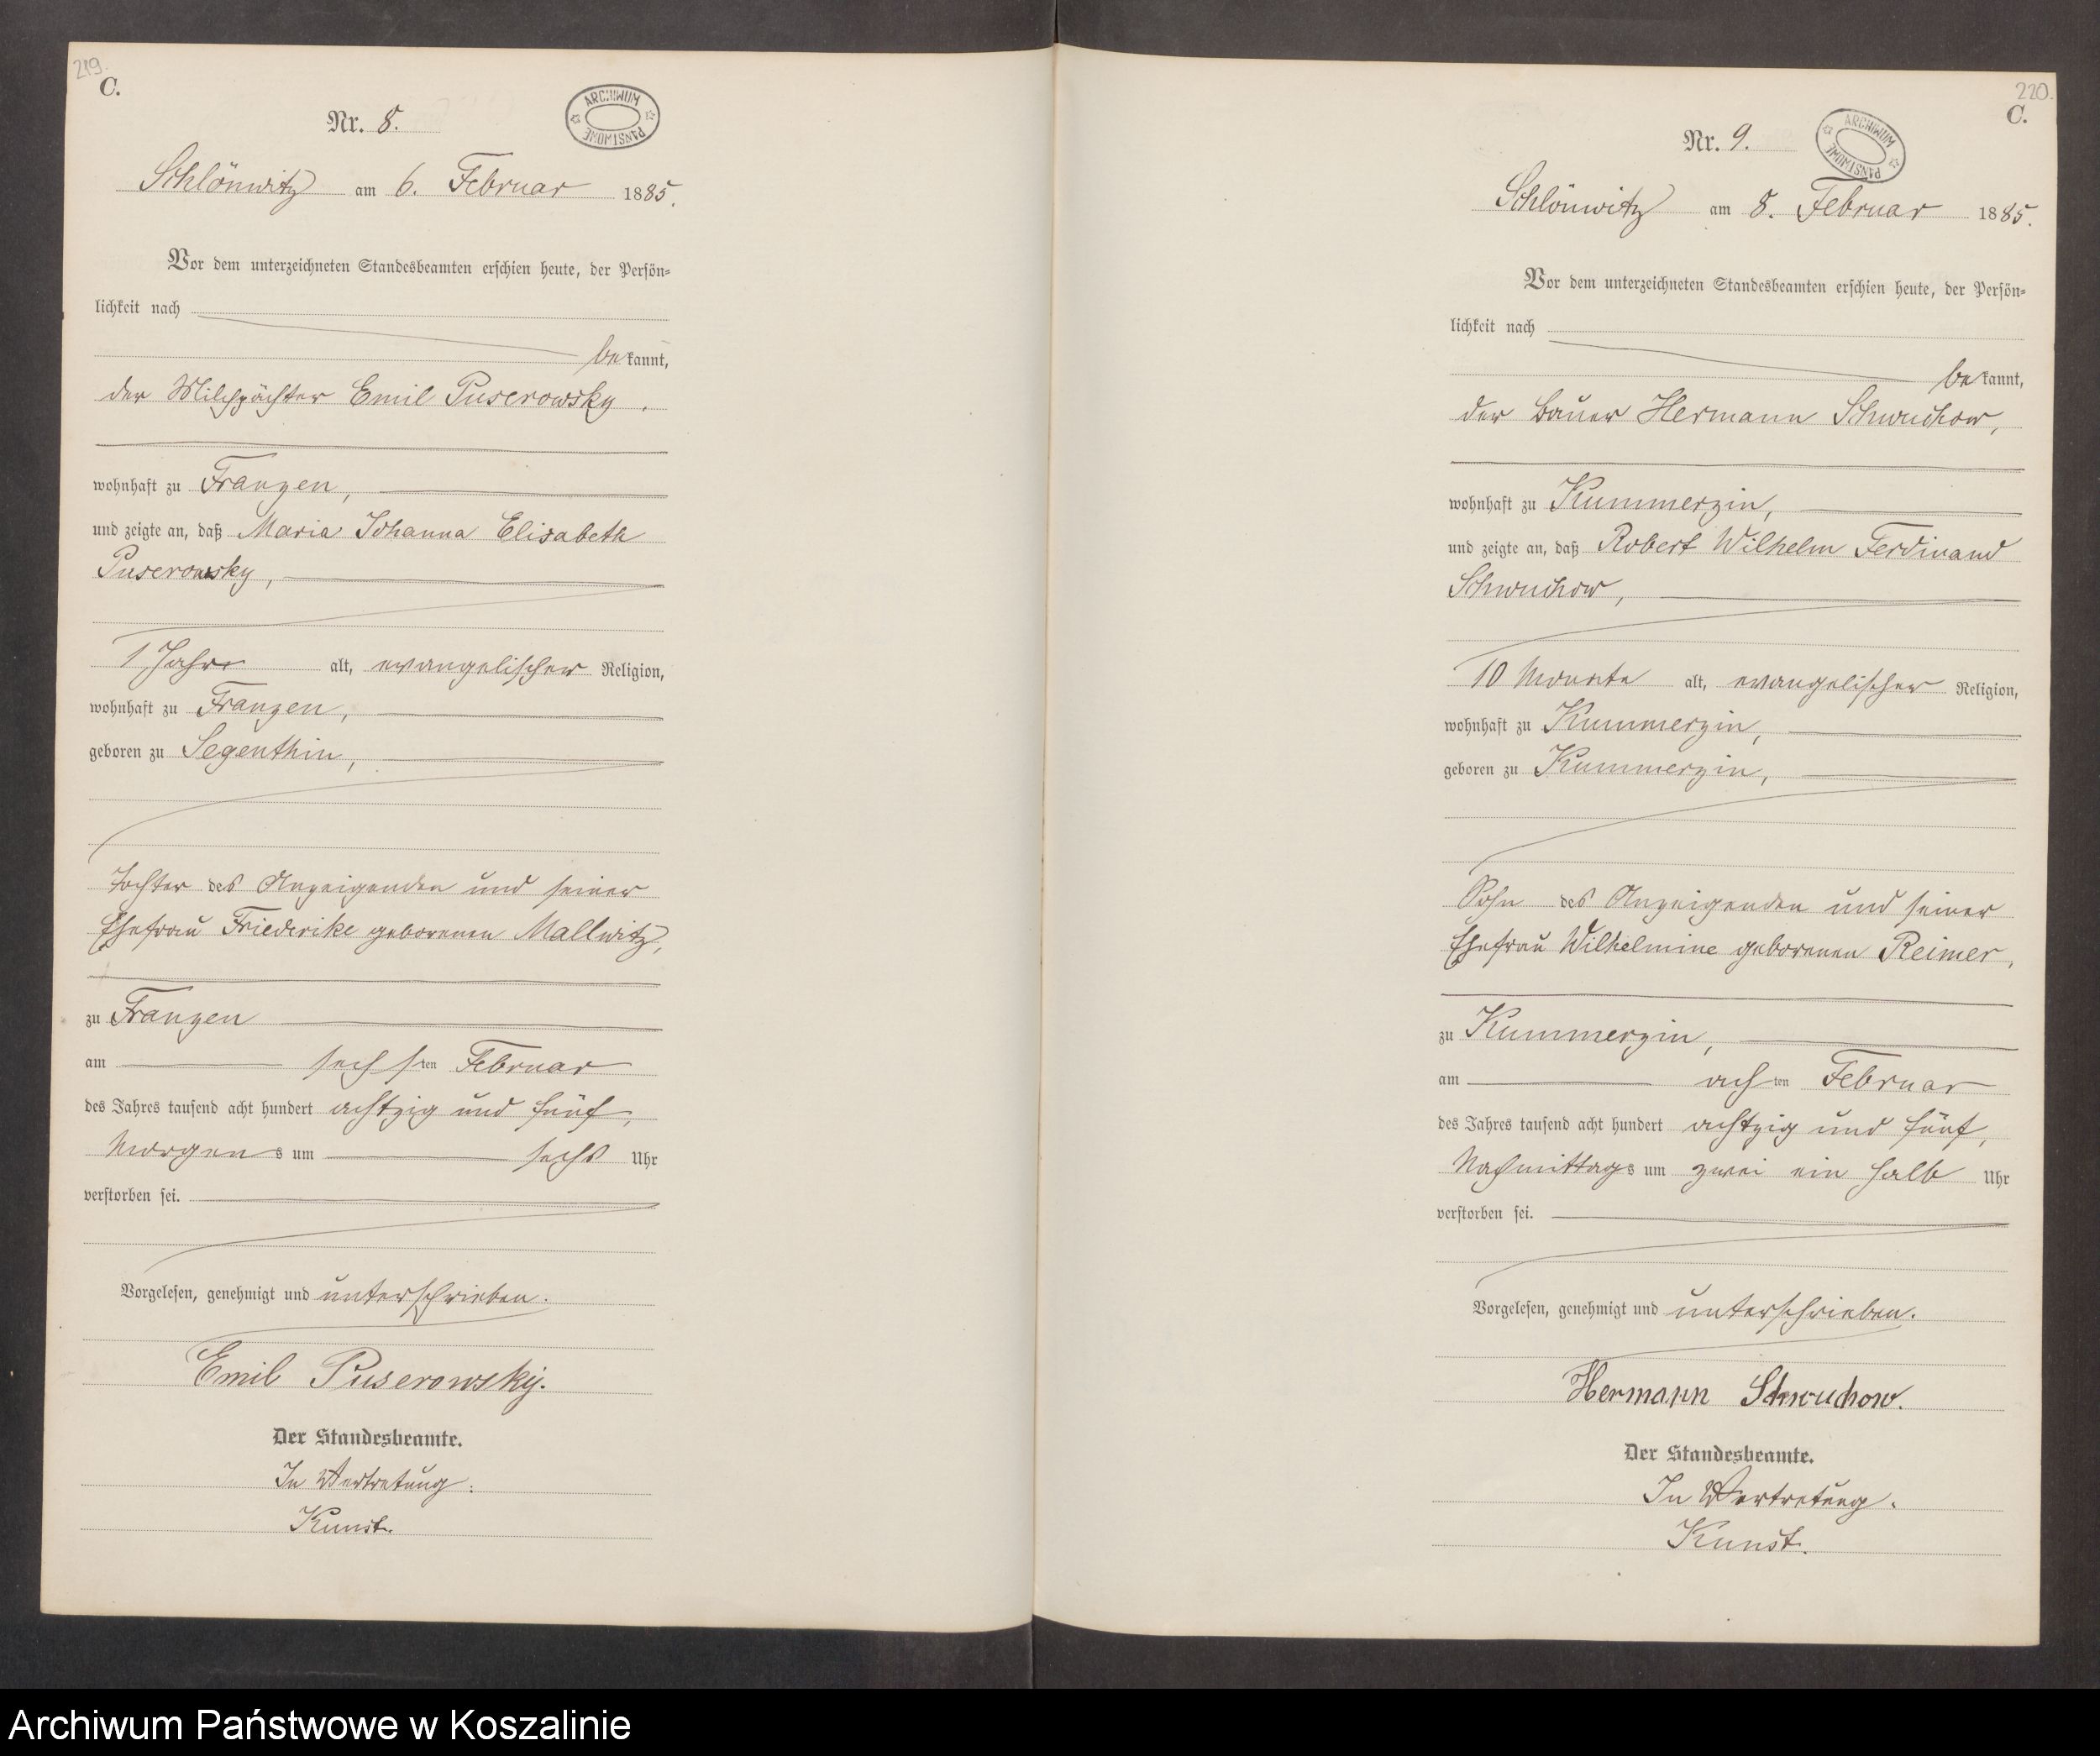 219.
C.
Nr. 8.
ARCHIWUM PAŃSTWOWE
Schlönwitz am 6. Februar 1885.
Vor dem unterzeichneten Standesbeamten erschien heute, der Persön-
lichkeit nach
bekannt,
der Milchpächter Emil Puserowsky.
wohnhaft zu Franzen,
und zeigte an, daß Maria Johanna Elisabeth
Puserowsky,
1 Jahr alt, evangelischer Religion,
wohnhaft zu Franzen,
geboren zu Segenthin,
Tochter des Anzeigenden und seiner
Ehefrau Friederike geborenen Mallwitz,
zu Franzen
am sechsten Februar
des Jahres tausend acht hundert achtzig und fünf,
Morgens um sechs Uhr
verstorben sei.
Vorgelesen, genehmigt und unterschrieben.
Emil Puserowsky.
Der Standesbeamte.
In Vertretung.
Kunst.
220.
C.
Nr. 9.
ARCHIWUM PAŃSTWOWE
Schlönwitz am 8. Februar 1885.
Vor dem unterzeichneten Standesbeamten erschien heute, der Persön-
lichkeit nach
bekannt,
der Bauer Hermann Schwuchow,
wohnhaft zu Kummerzin,
und zeigte an, daß Robert Wilhelm Ferdinand
Schwuchow,
10 Monate alt, evangelischer Religion,
wohnhaft zu Kummerzin,
geboren zu Kummerzin,
Sohn des Anzeigenden und seiner
Ehefrau Wilhelmine geborenen Reimer,
zu Kummerzin,
am achten Februar
des Jahres tausend acht hundert achtzig und fünf,
Nachmittags um zwei ein halb Uhr
verstorben sei.
Vorgelesen, genehmigt und unterschrieben.
Hermann Schwuchow.
Der Standesbeamte.
In Vertretung.
Kunst.
Archiwum Państwowe w Koszalinie